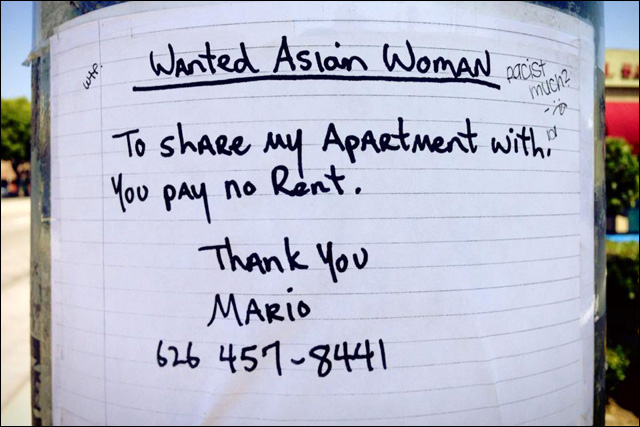 Wanted Asian Woman
wtf.
racist
much?
To share my Apartment with.
You pay no Rent.
Thank You
Mario
626 457-8441